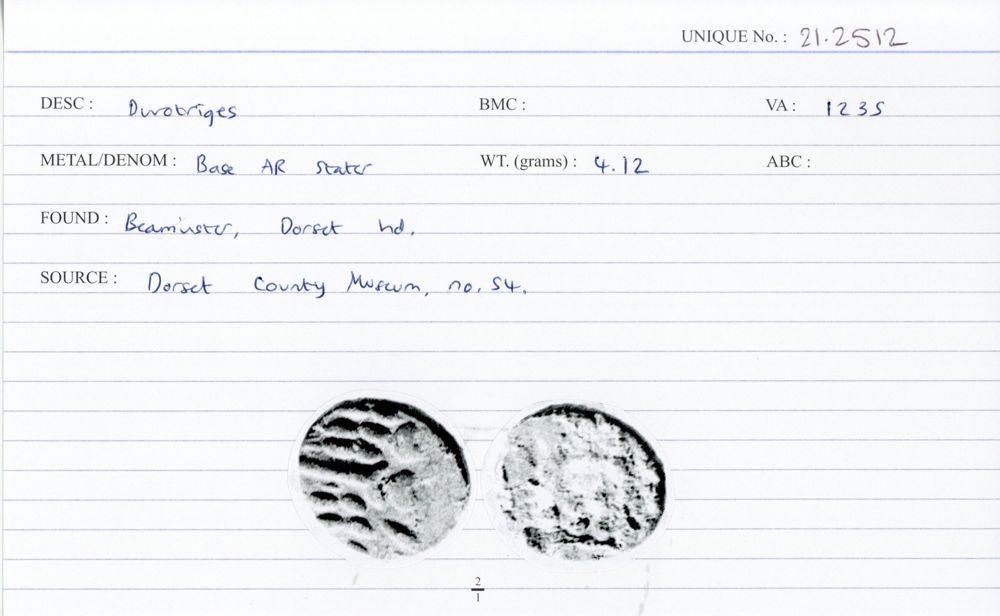 UNIQUE No. : 21.2512
DESC : Durotriges BMC : VA : 1235
METAL/DENOM : Base AR stater WT. (grams) : 4.12 ABC :
FOUND : Beaminster, Dorset hd.
SOURCE : Dorset County Museum, no. 54.
2
1